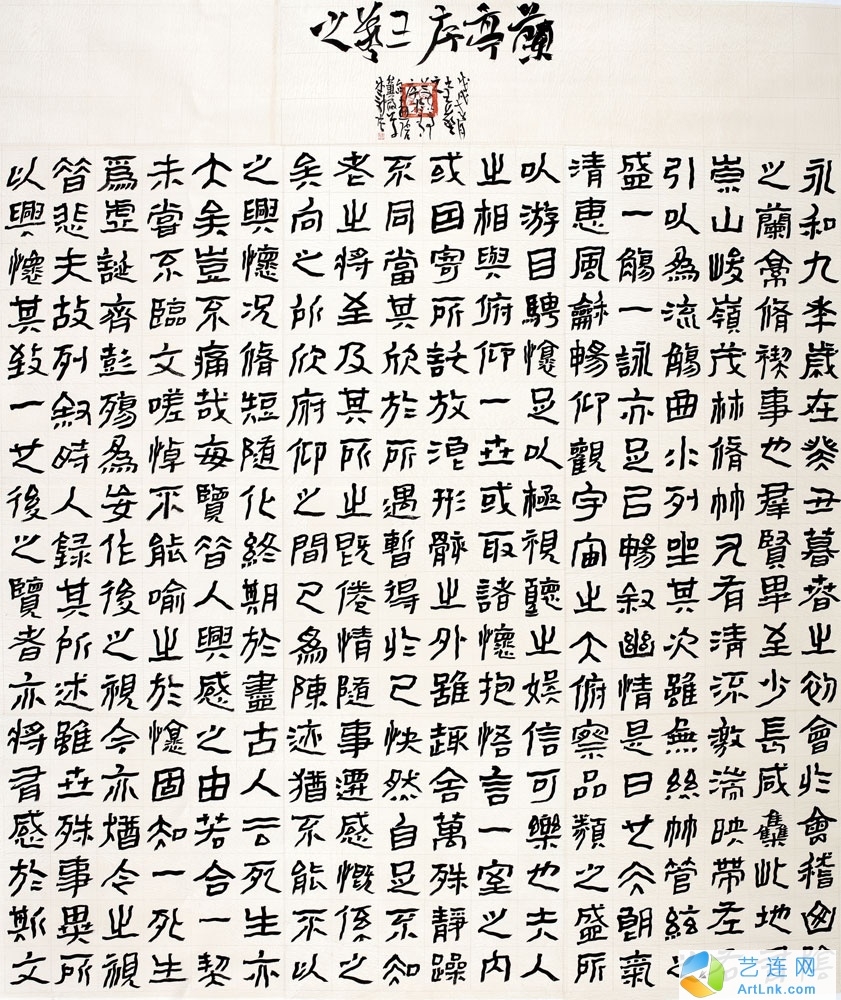 蘭亭序王羲之
永和九年歲在癸丑暮春之初會於會稽山陰
之蘭亭脩禊事也羣賢畢至少長咸集此地
崇山峻嶺茂林脩竹又有清流激湍映帶左
引以為流觴曲水列坐其次雖無絲竹管絃之
盛一觴一詠亦足以暢叙幽情是日也天朗氣
清惠風龢暢仰觀宇宙之大俯察品類之盛所
以游目騁懷足以極視聽之娛信可樂也夫人
之相與俯仰一世或取諸懷抱悟言一室之內
或因寄所託放浪形骸之外雖趣舍萬殊靜躁
不同當其欣於所遇暫得於己快然自足不知
老之將至及其所之既倦情隨事遷感慨係之
矣向之所欣俯仰之間已為陳迹猶不能不以
之興懷況脩短隨化終期於盡古人云死生亦
大矣豈不痛哉每覽昔人興感之由若合一契
未嘗不臨文嗟悼不能喻之於懷固知一死生
爲虛誕齊彭殤為妄作後之視今亦猶今之視
昔悲夫故列叙時人録其所述雖世殊事異所
以興懷其致一也後之覽者亦將有感於斯文
艺连网
ArtLnk.com